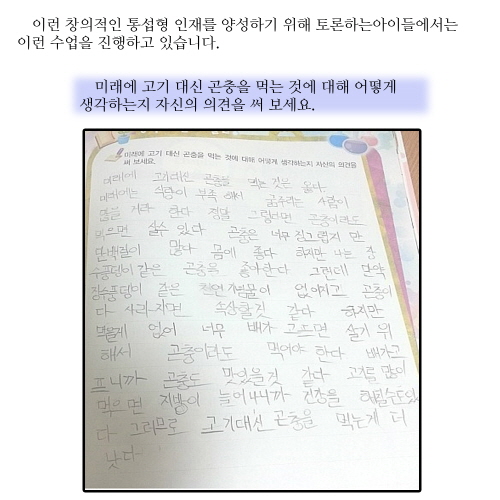 이런 창의적인 통섭형 인재를 양성하기 위해 토론하는아이들에서는
이런 수업을 진행하고 있습니다.
미래에 고기 대신 곤충을 먹는 것에 대해 어떻게
생각하는지 자신의 의견을 써 보세요.
미래에 고기 대신 곤충을 먹는 것에 대해 어떻게 생각하는지 자신의 의견을
써 보세요.
미래에 고기대신 곤충을 먹는 것은 옳다.
미래에는 식량이 부족해서 굶주리는 사람이
많을 거라 한다 정말 그렇다면 곤충이라도
먹으면 살수 있다 곤충은 너무 징그럽지 만
단백질이 많다 몸에 좋다 하지만 나는 장
수풍뎅이 같은 곤충을 좋아한다 그런데 만약
장수풍뎅이 같은 천연기념물이 없어지고 곤충이
다 사라지면 속상할것 같다 하지만
먹을게 없어 너무 배가 고프면 살기 위
해서 곤충이라도 먹어야 한다 배가고
프니까 곤충도 맛있을것 같다 고기를 많이
먹으면 지방이 늘어나니까 건강을 해칠수도있
다 그러므로 고기대신 곤충을 먹는게 더
낫다